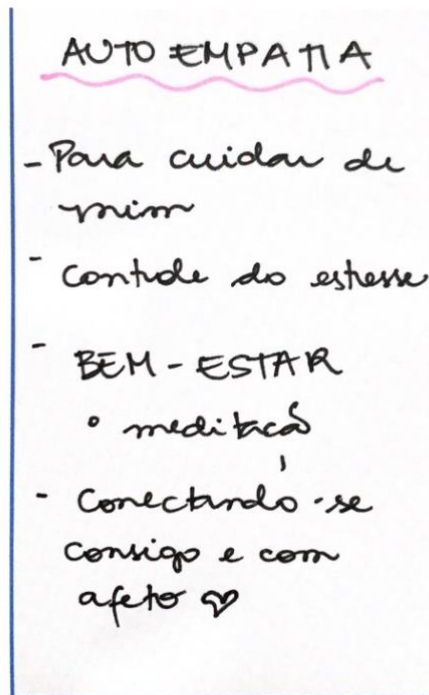 AUTO EMPATIA
- Para cuidar de
mim
- Controle do estresse
- BEM-ESTAR
• meditação
- Conectando-se
consigo e com
afeto ♡